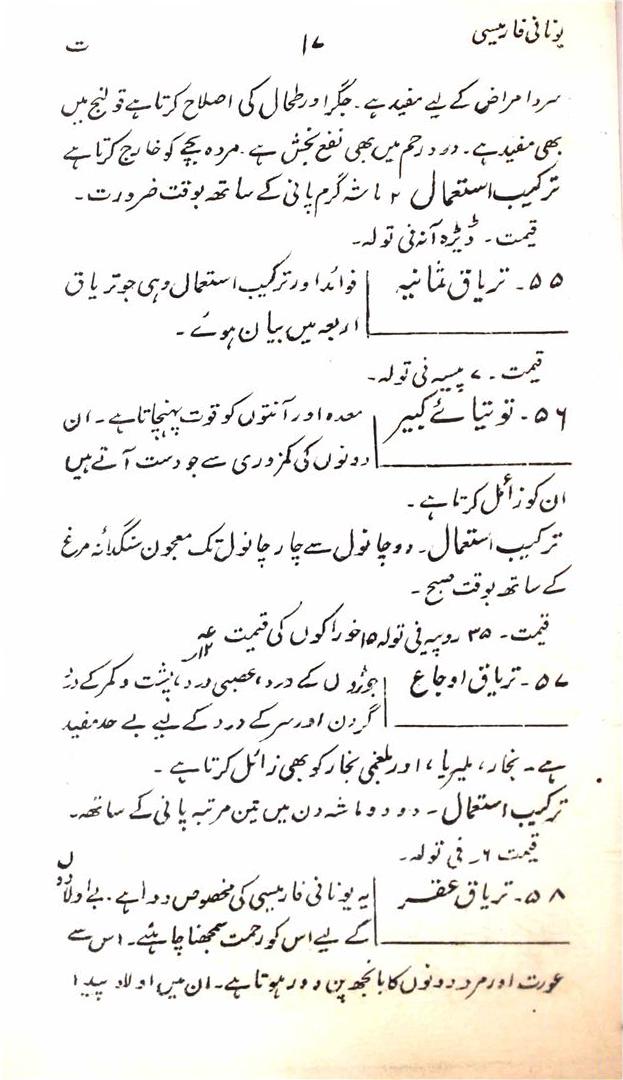 یونانی فارمیسی ۱۷ ت
سرد امراض کے لیے مفید ہے۔ جگر اور طحال کی اصلاح کرتا ہے قولنج میں
بھی مفید ہے۔ درد رحم میں بھی نفع بخش ہے۔ مردہ بچے کو خارج کرتا ہے
ترکیب استعمال ۲ ماشہ گرم پانی کے ساتھ بوقت ضرورت۔
قیمت۔ ڈیڑہ آنہ فی تولہ۔
۵۵۔ تریاق ثمانیہ فوائد اور ترکیب استعمال وہی جو تریاق
اربعہ میں بیان ہوئے۔
قیمت۔ ۷ پیسہ فی تولہ۔
۵۶۔ توتیائے کبیر معدہ اور آنتوں کو قوت پہنچاتا ہے۔ ان
دونوں کی کمزوری سے جو دست آتے ہیں
ان کو زائل کرتا ہے۔
ترکیب استعمال۔ دو چانول سے چار چانول تک معجون سنگدانہ مرغ
کے ساتھ بوقت صبح۔
قیمت۔ ۳۵ روپیہ فی تولہ ۱۵ خوراکوں کی قیمت
۵۷۔ تریاق اوجاع جوڑوں کے درد، عصبی درد، پشت و کمر کے درد
گردن اور سر کے درد کے لیے بے حد مفید
ہے۔ بخار، ملیریا، اور بلغمی بخار کو بھی زائل کرتا ہے۔
ترکیب استعمال۔ دو دو ماشہ دن میں تین مرتبہ پانی کے ساتھ۔
قیمت ۶۔ فی تولہ۔
۵۸۔ تریاق عقر یہ یونانی فارمیسی کی مخصوص دوا ہے۔ بے اولادوں
کے لیے اس کو رحمت سمجھنا چاہئے۔ اس سے
عورت اور مرد دونوں کا بانجھ پن دور ہوتا ہے۔ ان میں اولاد پیدا